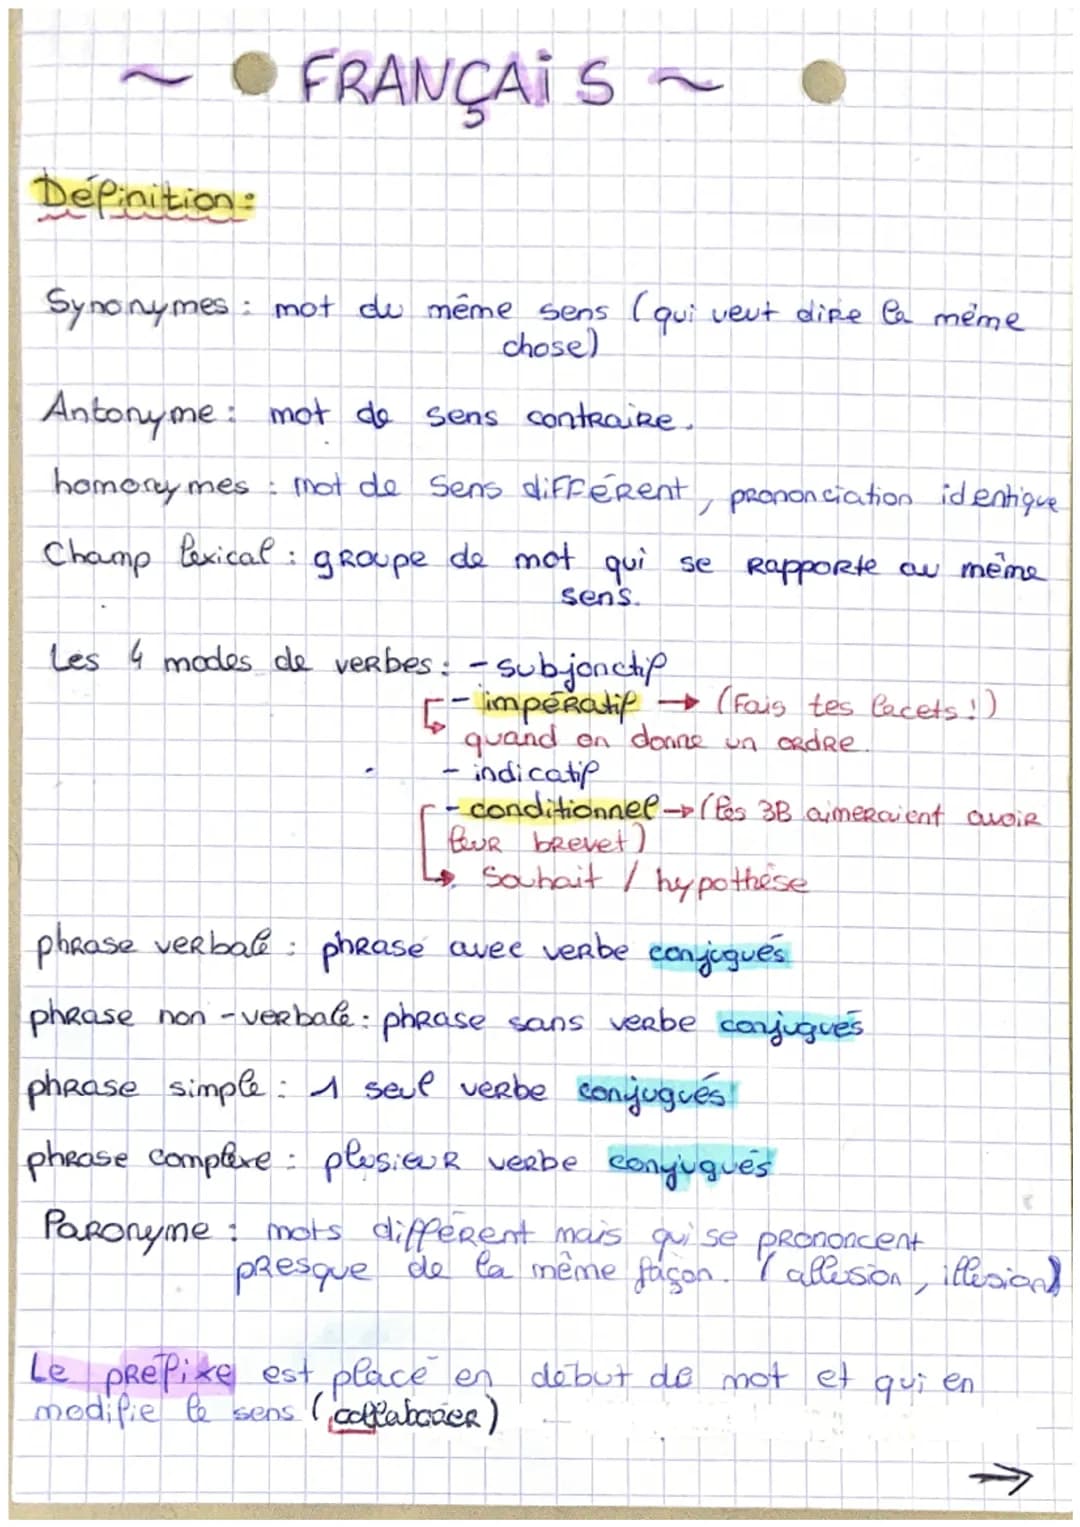 ~ FRANÇAiS ~
Définition :
Synonymes : mot du même sens (qui veut dire la même
chose)
Antonyme : mot de sens contraire.
homonymes : mot de sens différent, prononciation identique
Champ lexical : groupe de mot qui se rapporte au même
sens.
Les 4 modes de verbes : - subjonctif
- impératif → (Fais tes lacets !)
quand on donne un ordre.
- indicatif
- conditionnel → (les 3B aimeraient avoir
leur brevet)
↳ Souhait / hypothèse
phrase verbale : phrase avec verbe conjugués
phrase non-verbale : phrase sans verbe conjugués
phrase simple : 1 seul verbe conjugués
phrase complexe : plusieur verbe conjugués
Paronyme : mots différent mais qui se prononcent
presque de la même façon. (allusion, illusion)
Le préfixe est placé en début de mot et qui en
modifie le sens (collaborer)
⇒